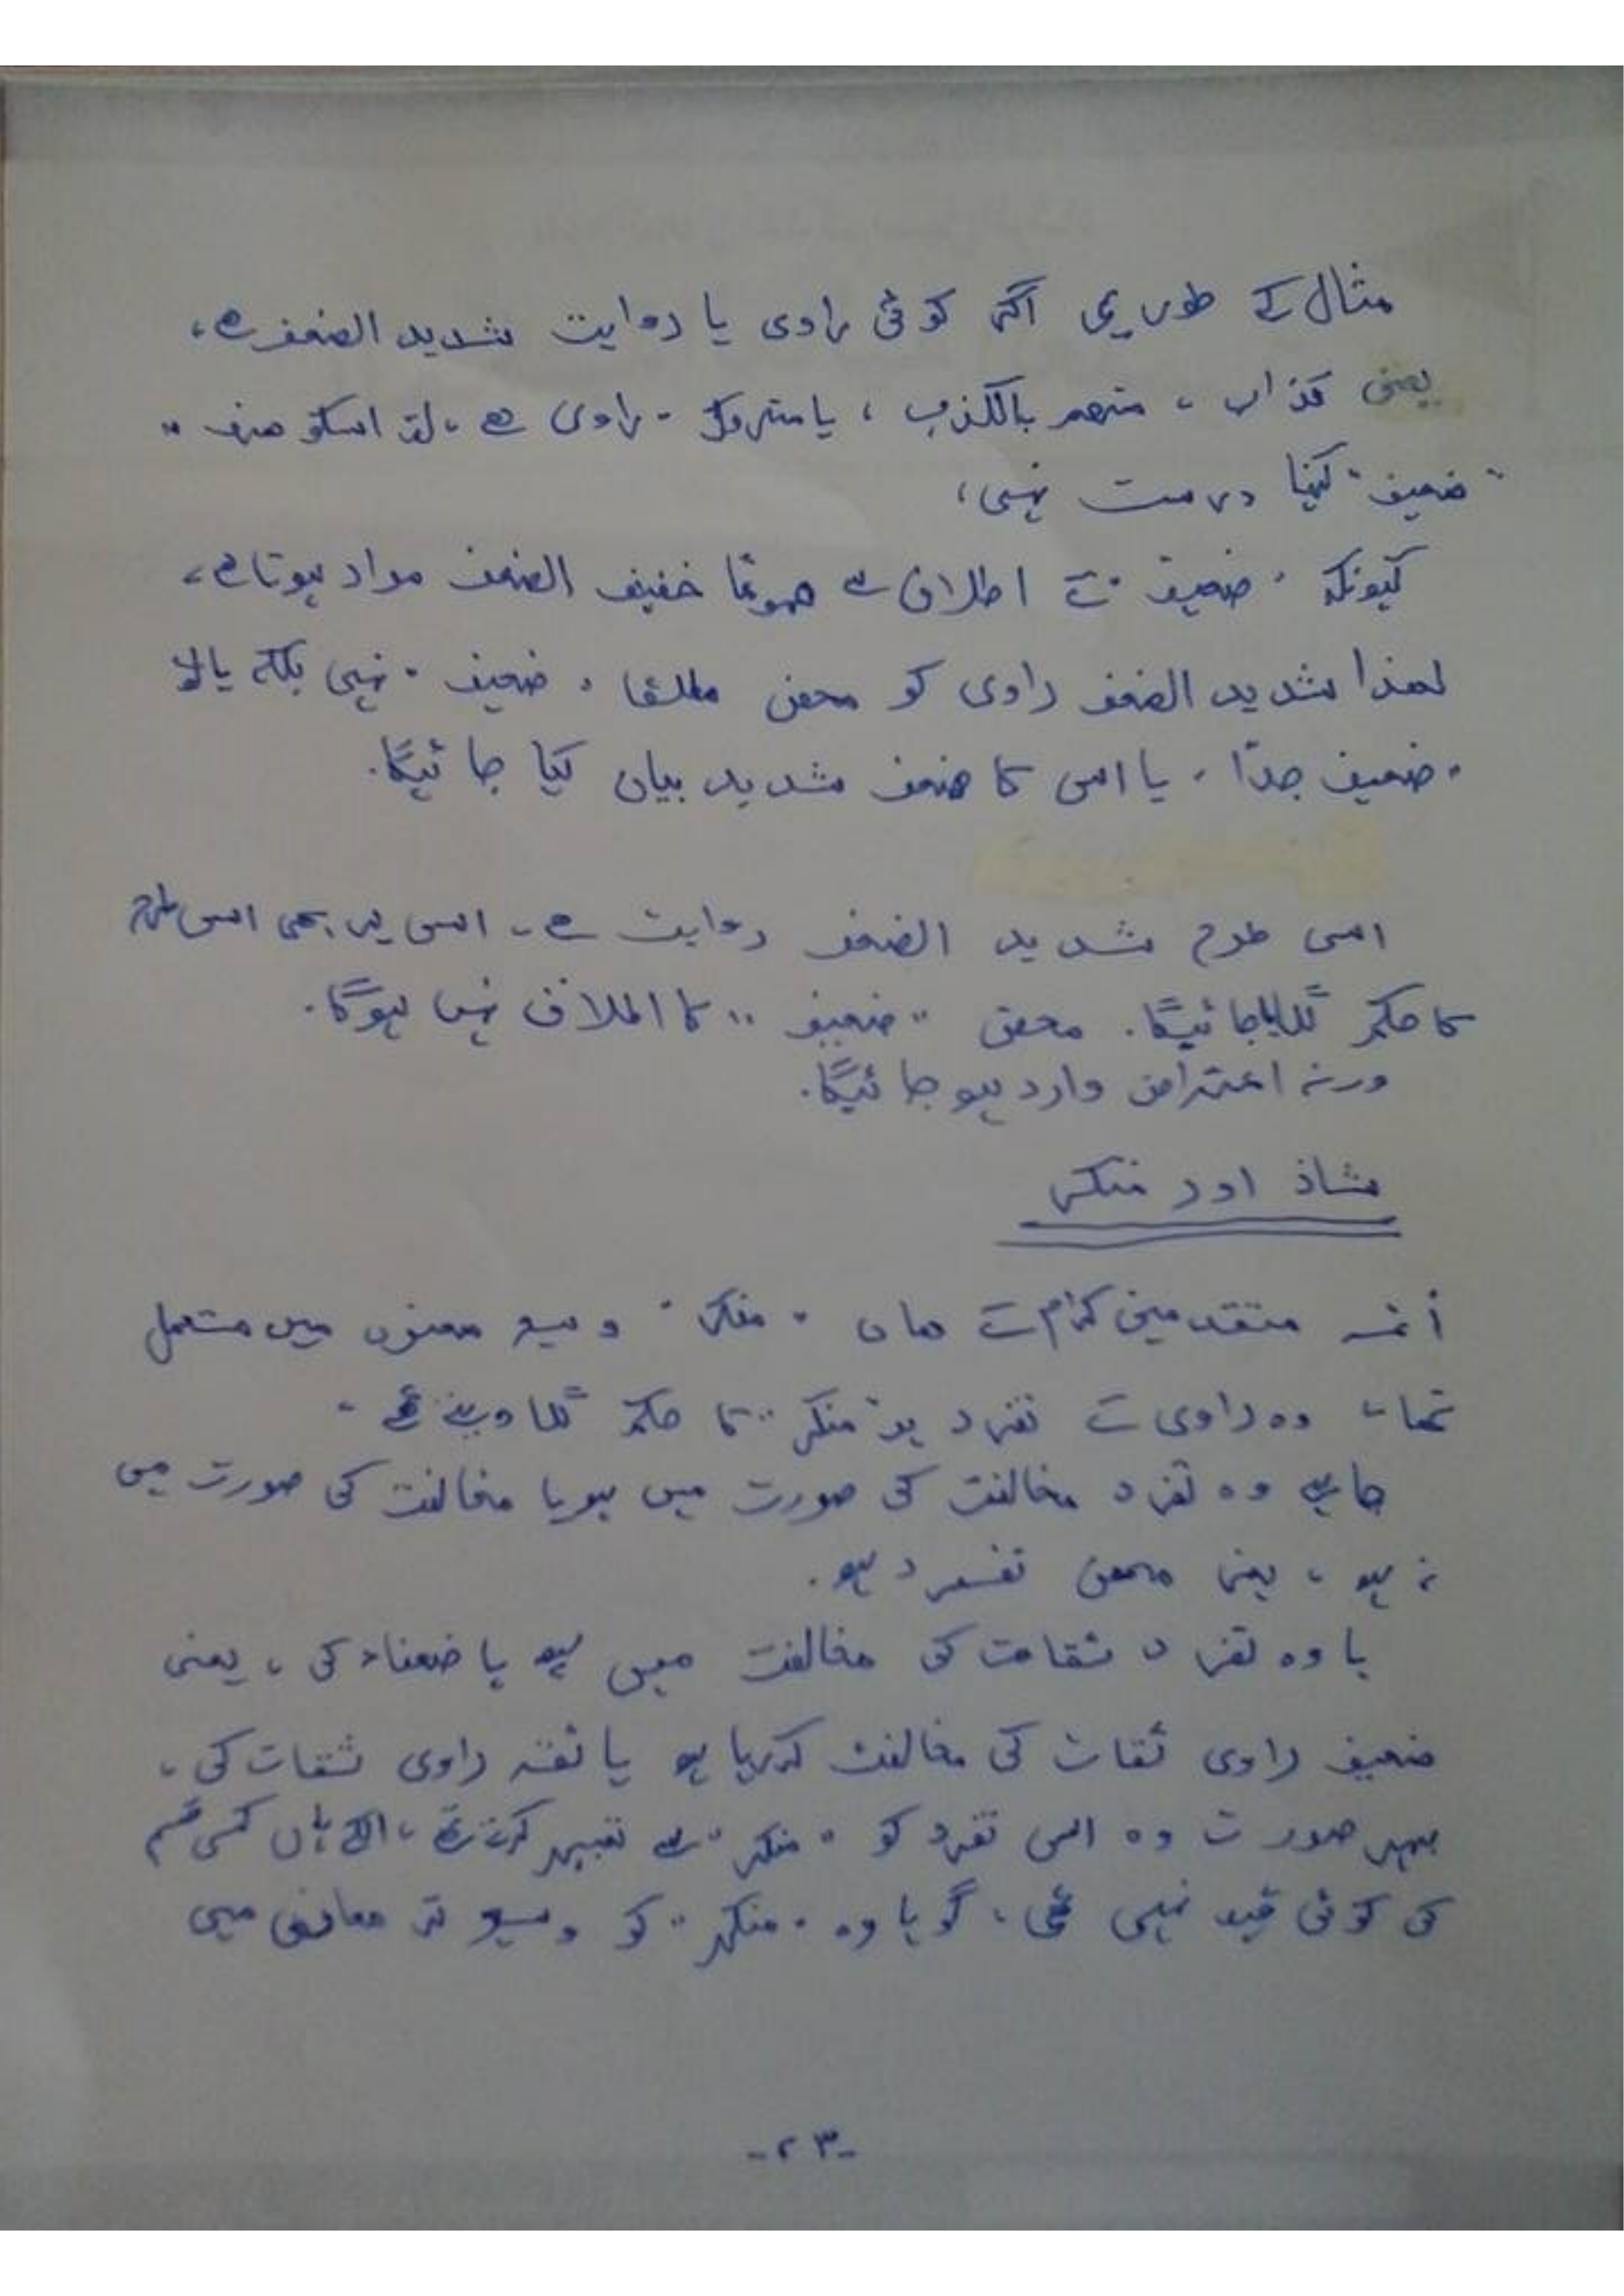 مثال کے طور پر اگر کوئی راوی یا روایت شدید الضعف ہے،
یعنی کذاب، متھم بالکذب، یا متروک راوی ہے، تو اسکو صرف "
"ضعیف" کہنا درست نہیں،
کیونکہ "ضعیف" کے اطلاق سے عموما خفیف الضعف مراد ہوتا ہے،
لھذا شدید الضعف راوی کو محض مطلقا "ضعیف" نہیں بلکہ
"ضعیف جدّا" یا اس کا ضعف شدید بیان کیا جائیگا۔
اسی طرح شدید الضعف روایت ہے۔ اس پر بھی اسی طرح
کا حکم لگایا جائیگا۔ محض "ضعیف" کا اطلاق نہیں ہوگا۔
ورنہ اعتراض وارد ہو جائیگا۔
شاذ اور منکر
أئمہ متقدمین کرام کے ھاں "منکر" وسیع معنوں میں مستعمل
تھا، وہ راوی کے تفرد پر "منکر" کا حکم لگا دیتے تھے۔
چاہے وہ تفرد مخالفت کی صورت میں ہو یا مخالفت کی صورت میں
نہ ہو، یعنی محض تفرد ہو۔
یا وہ تفرد ثقات کی مخالفت میں ہو یا ضعفاء کی، یعنی
ضعیف راوی ثقات کی مخالفت کررہا ہو یا ثقہ راوی ثقات کی،
بہر صورت وہ اس تفرد کو "منکر" سے تعبیر کرتے تھے، انکے ہاں کسی قسم
کی کوئی قید نہیں تھی، گویا وہ "منکر" کو وسیع تر معانی میں
-۲۳-